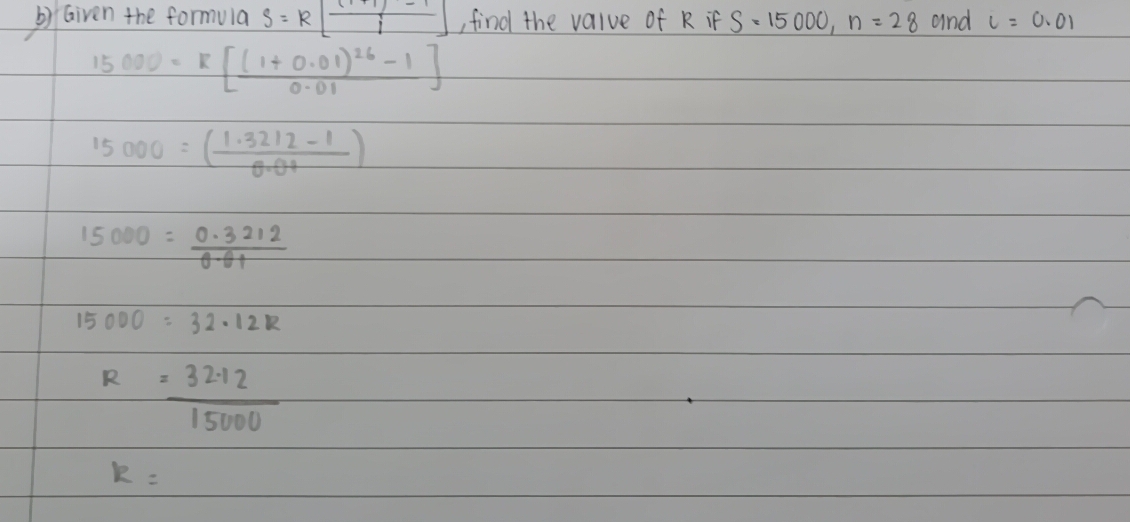 b) Given the formula S = R [ (1+i) - 1 / i ], find the value of R if S = 15000, n = 28 and i = 0.01
15 000 = R [ (1 + 0.01)^26 - 1 / 0.01 ]
15 000 = ( 1.3212 - 1 / 0.01 )
15 000 = 0.3212 / 0.01
15 000 = 32.12R
R = 32.12 / 15000
R =